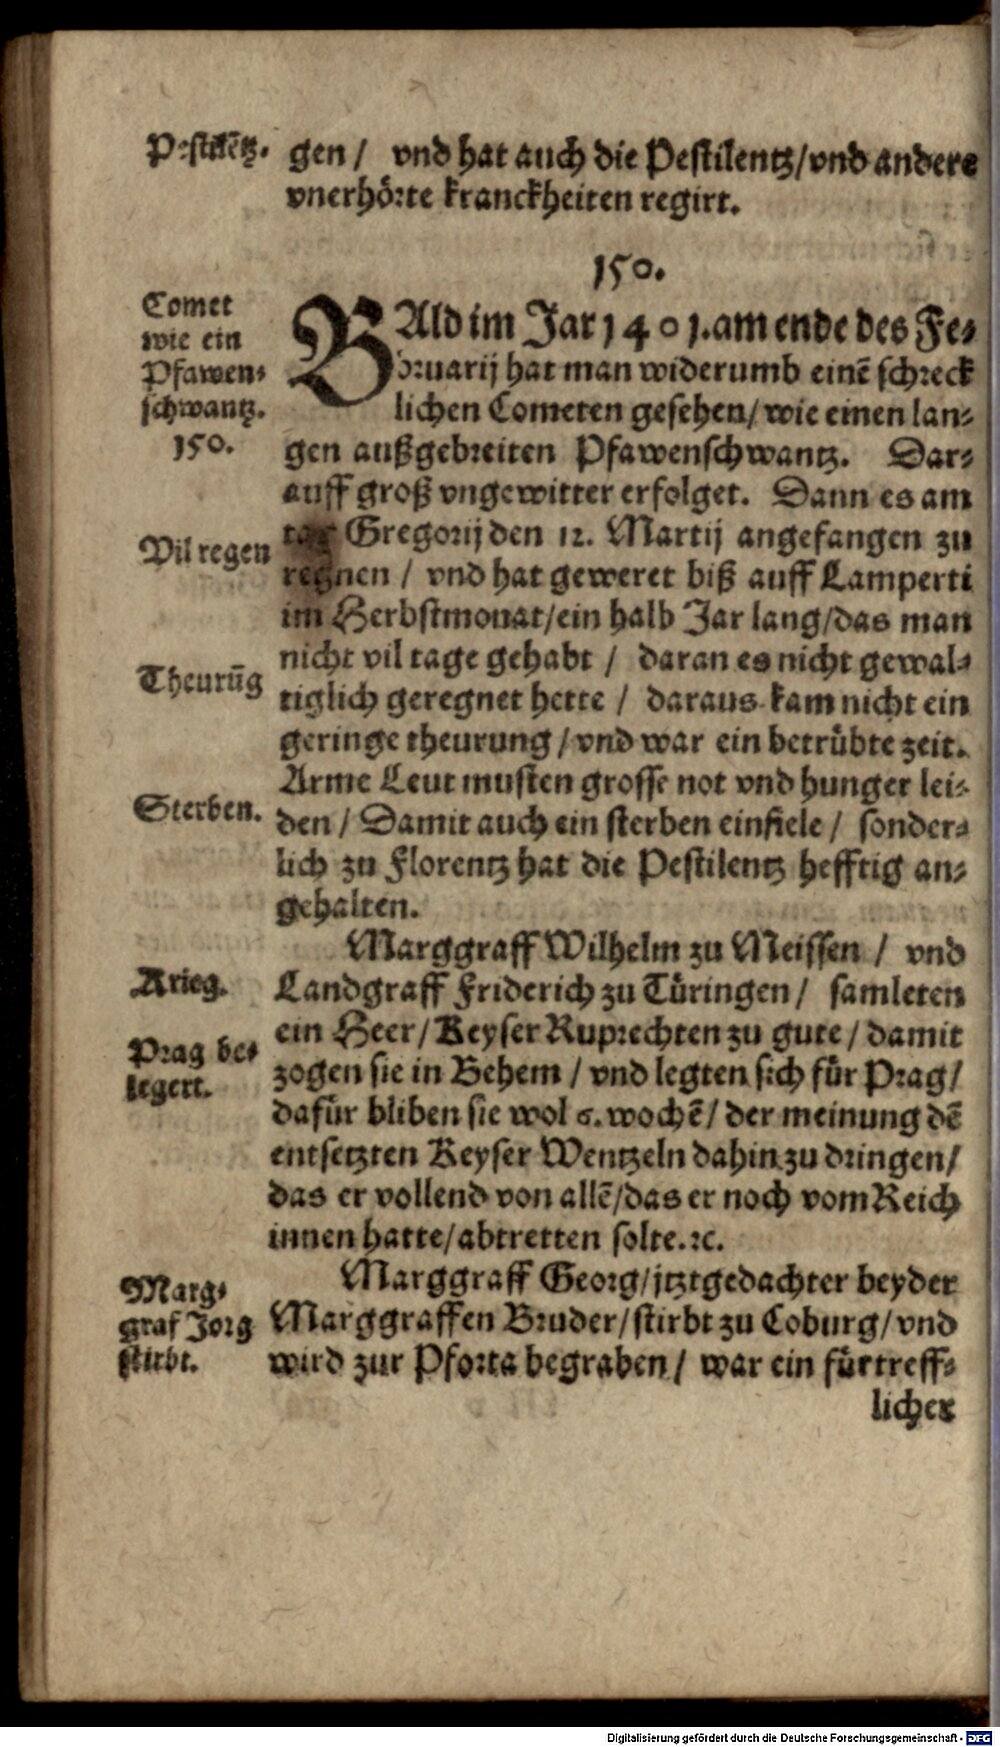 Pestilētz.
gen / vnd hat auch die Pestilentz/vnd andere
vnerhörte kranckheiten regirt.
150.
Comet
wie ein
Pfawen-
schwantz.
150.
BAld im Jar 1401. am ende des Fe-
bruarij hat man widerumb einē schreck
lichen Cometen gesehen/ wie einen lan-
gen außgebreiten Pfawenschwantz. Dar-
auff groß vngewitter erfolget. Dann es am
tag Gregorij den 12. Martij angefangen zu
Vil regen
regnen / vnd hat geweret biß auff Lamperti
im Herbstmonat/ein halb Jar lang/das man
nicht vil tage gehabt / daran es nicht gewal-
Theurūg
tiglich geregnet hette / daraus kam nicht ein
geringe theurung / vnd war ein betrübte zeit.
Arme Leut musten grosse not vnd hunger lei-
Sterben.
den / Damit auch ein sterben einfiele / sonder-
lich zu Florentz hat die Pestilentz hefftig an-
gehalten.
Marggraff Wilhelm zu Meissen / vnd
Krieg.
Landgraff Friderich zu Türingen / samleten
ein Heer / Keyser Ruprechten zu gute / damit
Prag be-
legert.
zogen sie in Behem / vnd legten sich für Prag /
dafür bliben sie wol 6. wochē / der meinung dē
entsetzten Keyser Wentzeln dahin zu dringen /
das er vollend von allē/das er noch vom Reich
innen hatte/abtretten solte.ꝛc.
Marggraff Georg/jtztgedachter beyder
Marg-
graf Jorg
stirbt.
Marggraffen Bruder/stirbt zu Coburg/vnd
wird zur Pforta begraben / war ein fürtreff-
licher
Digitalisierung gefördert durch die Deutsche Forschungsgemeinschaft - DFG